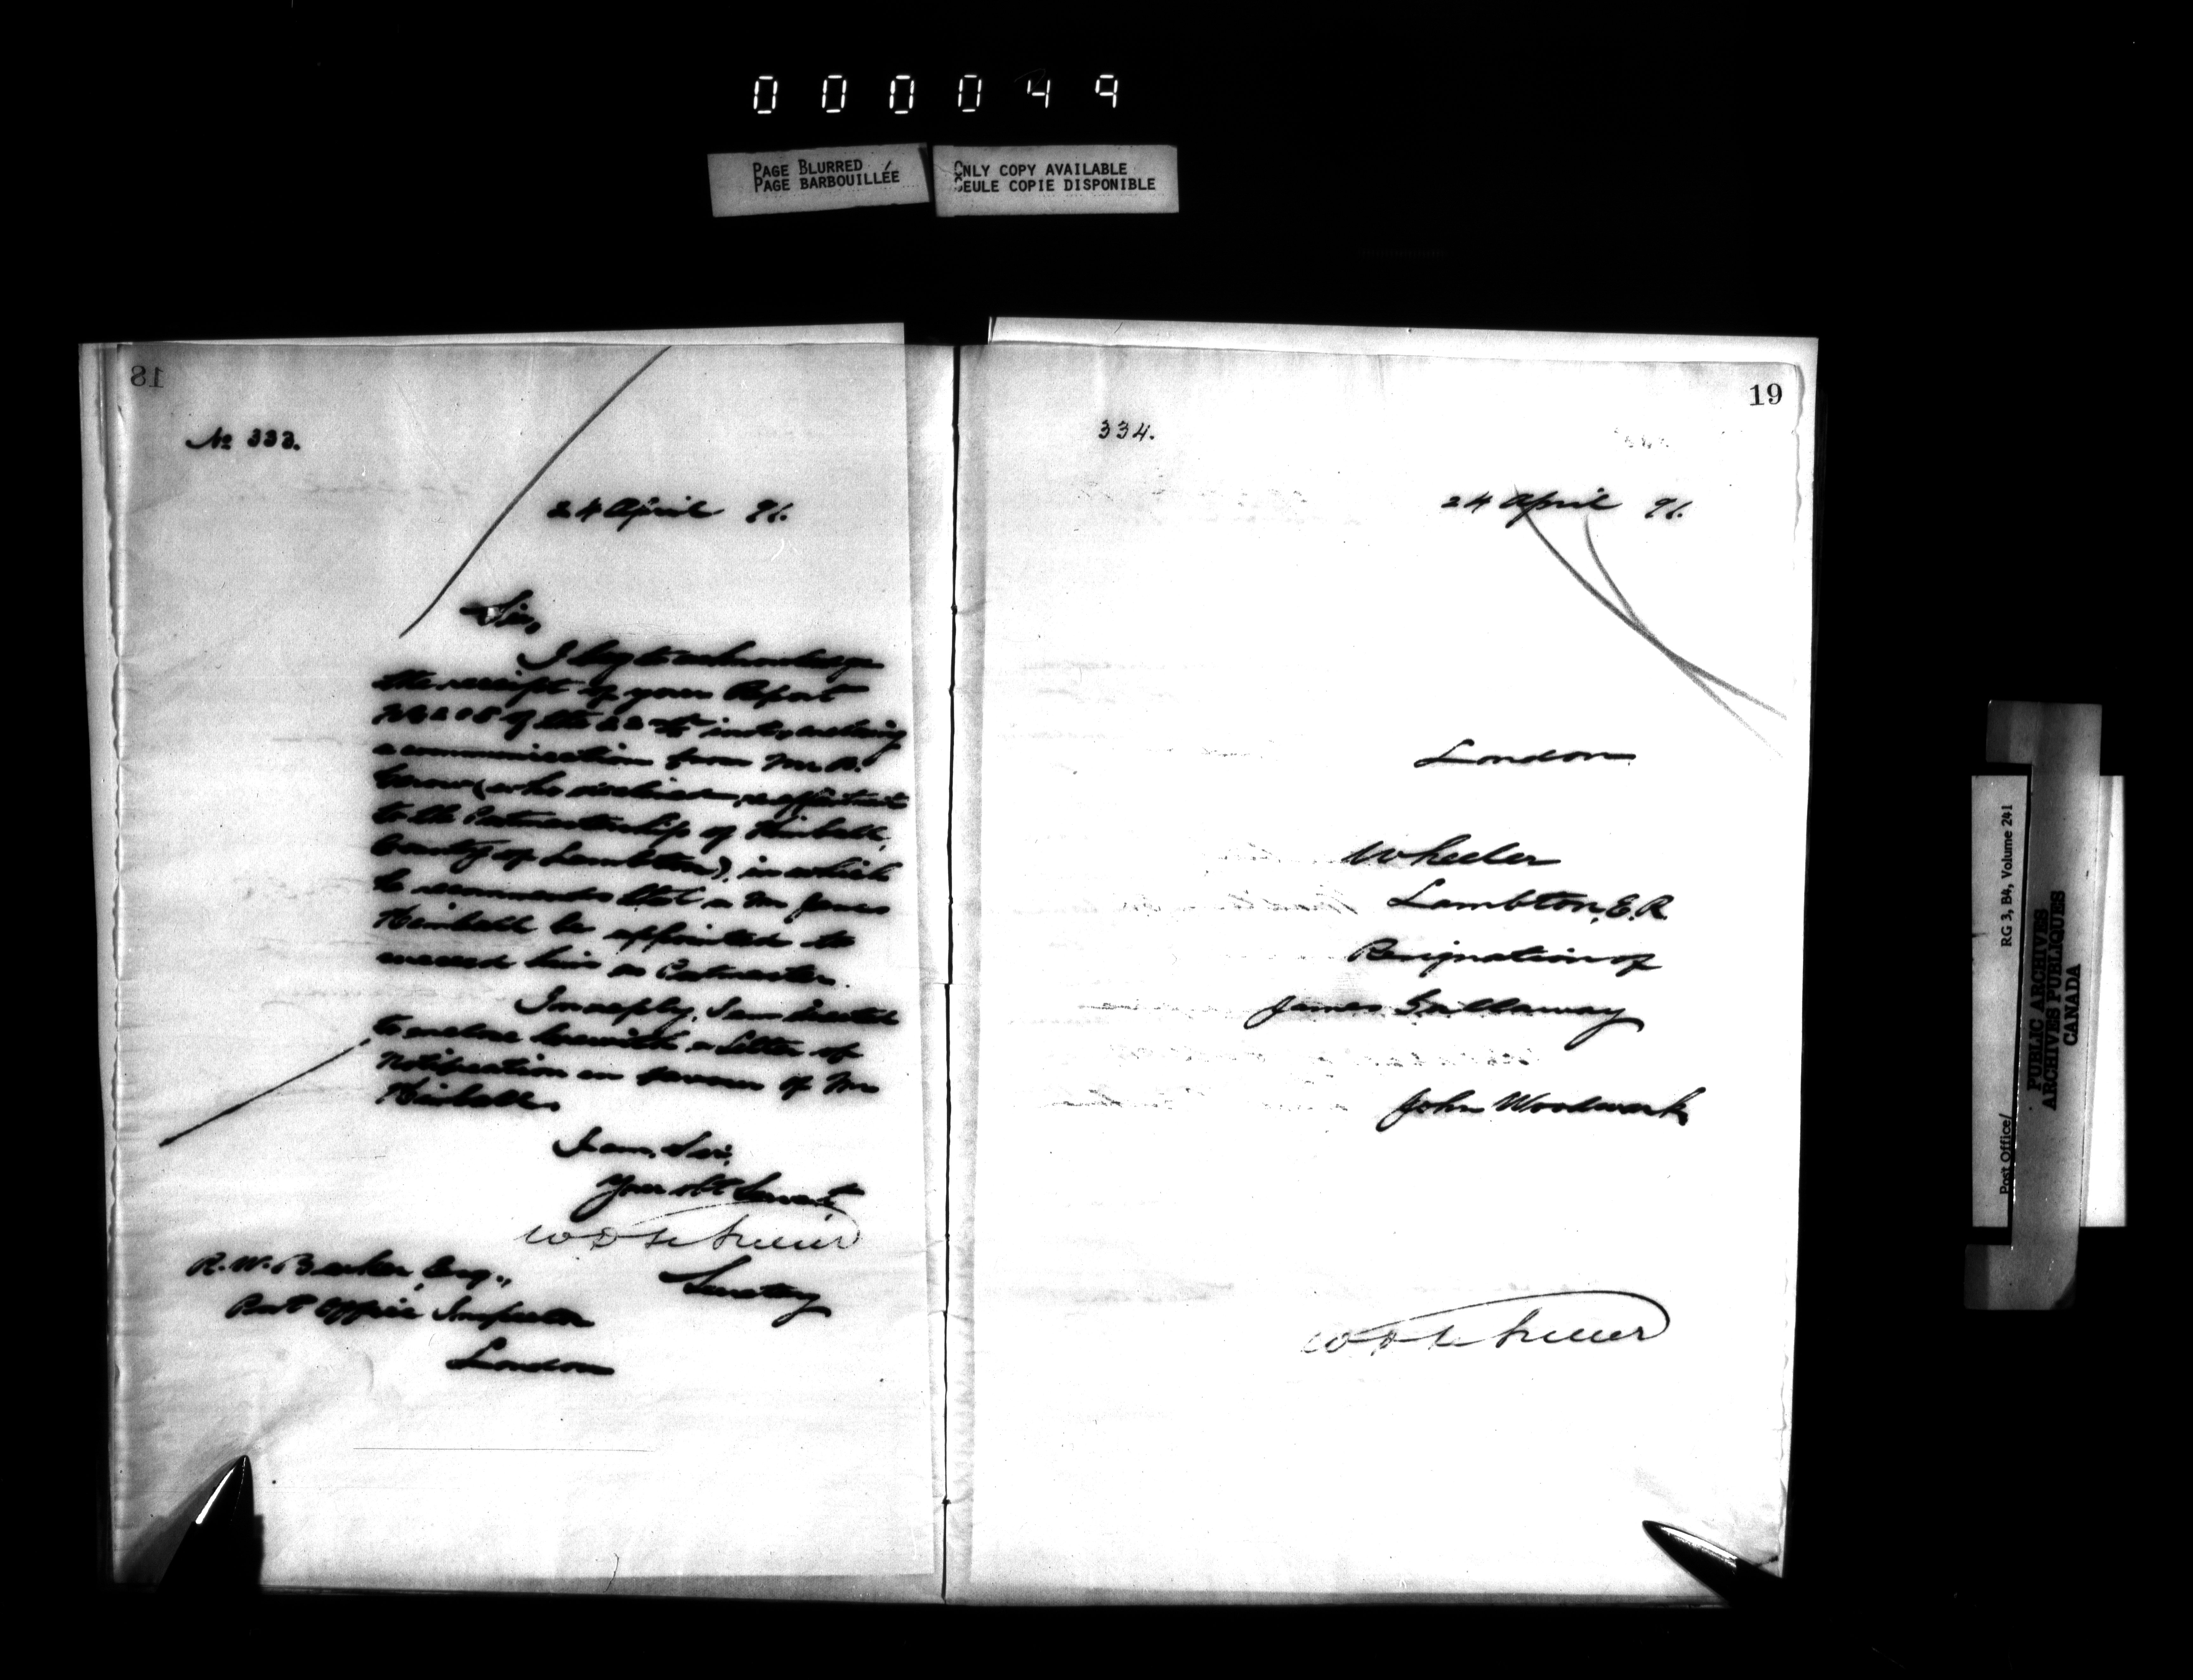 000049
PAGE BLURRED
PAGE BARBOUILLÉE
ONLY COPY AVAILABLE
SEULE COPIE DISPONIBLE
18
No 333.
24 April 91.
Sir,
I beg to acknowledge
the receipt of your Report
of the 22nd inst, enclosing
a communication from Mr. R.
(who declines appointment
to the Postmastership of Kimball,
County of Lambton), in which
he recommends that a Mr James
Kimball be appointed to
succeed him as Postmaster.
In reply, I am directed
to enclose herewith a Letter of
Notification in favour of Mr
Kimball.
I am, Sir,
Your obt Servant
Secretary
R. W. Barker, Esq.,
Post Office Inspector
London
19
334.
24 April 91.
London
Wheeler
Lambton, E. R
Resignation of
James Gallaway
John Woodwark
RG 3, B4, Volume 241
Post Office/
PUBLIC ARCHIVES
ARCHIVES PUBLIQUES
CANADA